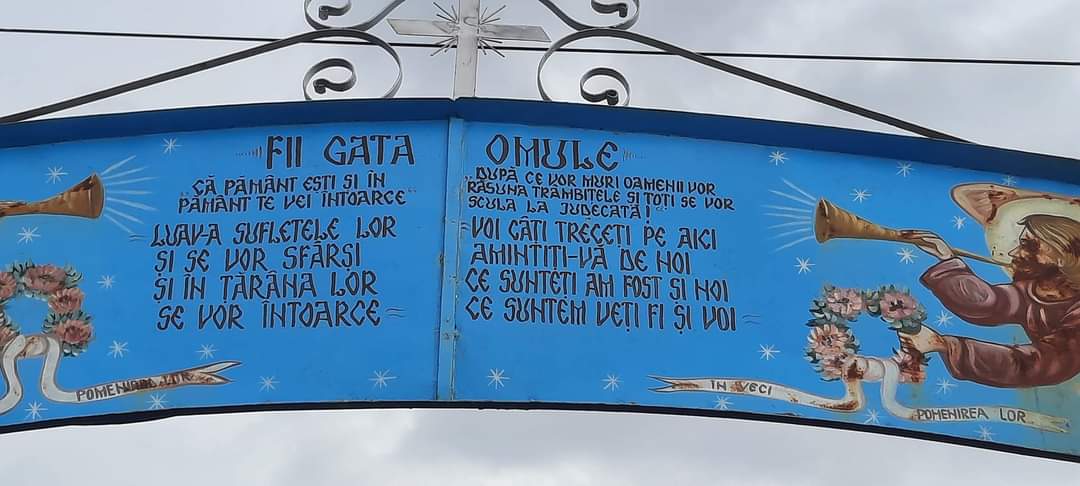 FII GATA OMULE
"CĂ PĂMÂNT EȘTI ȘI ÎN
PĂMÂNT TE VEI ÎNTOARCE"
LUAV-A SUFLETELE LOR
ȘI SE VOR SFÂRȘI
ȘI ÎN ȚĂRÂNA LOR
SE VOR ÎNTOARCE
"DUPĂ CE VOR MURI OAMENII VOR
RĂSUNA TRÂMBIȚELE ȘI TOȚI SE VOR
SCULA LA JUDECATĂ!"
VOI CÂȚI TRECEȚI PE AICI
AMINTIȚI-VĂ DE NOI
CE SUNTEȚI AM FOST ȘI NOI
CE SUNTEM VEȚI FI ȘI VOI
POMENIREA LOR
IN VECI
POMENIREA LOR